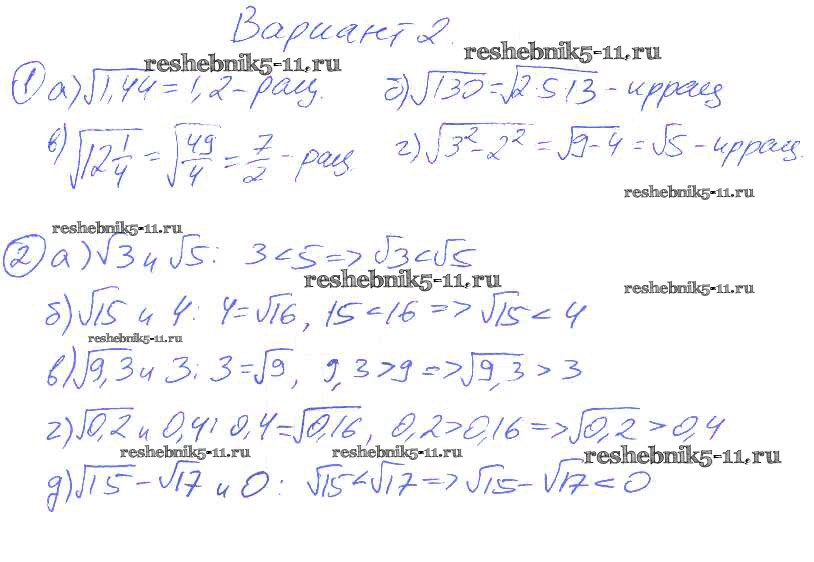 Вариант 2.
reshebnik5-11.ru reshebnik5-11.ru
1 а) √1,44 = 1,2 - рац. б) √130 = √2·5·13 - иррац
в) √12 1/4 = √49/4 = 7/2 - рац. г) √3² - 2² = √9-4 = √5 - иррац.
reshebnik5-11.ru
reshebnik5-11.ru
2 а) √3 и √5: 3 < 5 => √3 < √5
reshebnik5-11.ru reshebnik5-11.ru
б) √15 и 4: 4 = √16, 15 < 16 => √15 < 4
reshebnik5-11.ru
в) √9,3 и 3: 3 = √9, 9,3 > 9 => √9,3 > 3
г) √0,2 и 0,4: 0,4 = √0,16, 0,2 > 0,16 => √0,2 > 0,4
reshebnik5-11.ru reshebnik5-11.ru reshebnik5-11.ru
д) √15 - √17 и 0: √15 < √17 => √15 - √17 < 0